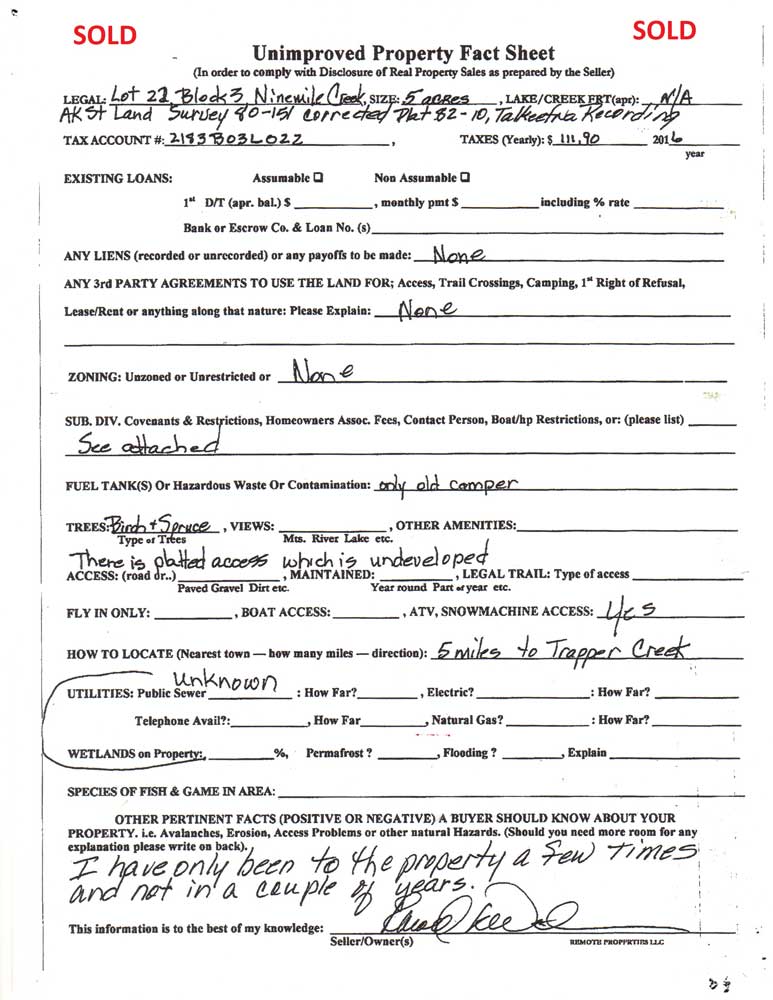 SOLD SOLD
Unimproved Property Fact Sheet
(In order to comply with Disclosure of Real Property Sales as prepared by the Seller)
LEGAL: Lot 22 Block 3 Ninemile Creek, SIZE: 5 acres, LAKE/CREEK FRT(apr): N/A
AK St Land Survey 80-151 corrected Plat 82-10, Talkeetna Recording
TAX ACCOUNT #: 2183B03L022, TAXES (Yearly): $ 111.90 2016
year
EXISTING LOANS: Assumable ❑ Non Assumable ❑
1st D/T (apr. bal.) $ ____, monthly pmt $ ____ including % rate ____
Bank or Escrow Co. & Loan No. (s) ____
ANY LIENS (recorded or unrecorded) or any payoffs to be made: None
ANY 3rd PARTY AGREEMENTS TO USE THE LAND FOR; Access, Trail Crossings, Camping, 1st Right of Refusal,
Lease/Rent or anything along that nature: Please Explain: None
ZONING: Unzoned or Unrestricted or None
SUB. DIV. Covenants & Restrictions, Homeowners Assoc. Fees, Contact Person, Boat/hp Restrictions, or: (please list) ____
See attached
FUEL TANK(S) Or Hazardous Waste Or Contamination: only old camper
TREES: Birch + Spruce, VIEWS: ____, OTHER AMENITIES: ____
Type of Trees Mts. River Lake etc.
There is platted access which is undeveloped
ACCESS: (road dr..) ____, MAINTAINED: ____, LEGAL TRAIL: Type of access ____
Paved Gravel Dirt etc. Year round Part of year etc.
FLY IN ONLY: ____, BOAT ACCESS: ____, ATV, SNOWMACHINE ACCESS: Yes
HOW TO LOCATE (Nearest town — how many miles — direction): 5 miles to Trapper Creek
Unknown
UTILITIES: Public Sewer ____ : How Far? ____, Electric? ____ : How Far? ____
Telephone Avail?: ____, How Far ____, Natural Gas? ____ : How Far? ____
WETLANDS on Property: ____ %, Permafrost ? ____, Flooding ? ____, Explain ____
SPECIES OF FISH & GAME IN AREA: ____
OTHER PERTINENT FACTS (POSITIVE OR NEGATIVE) A BUYER SHOULD KNOW ABOUT YOUR
PROPERTY. i.e. Avalanches, Erosion, Access Problems or other natural Hazards. (Should you need more room for any
explanation please write on back).
I have only been to the property a few times
and not in a couple of years.
This information is to the best of my knowledge:
Seller/Owner(s) REMOTE PROPERTIES LLC